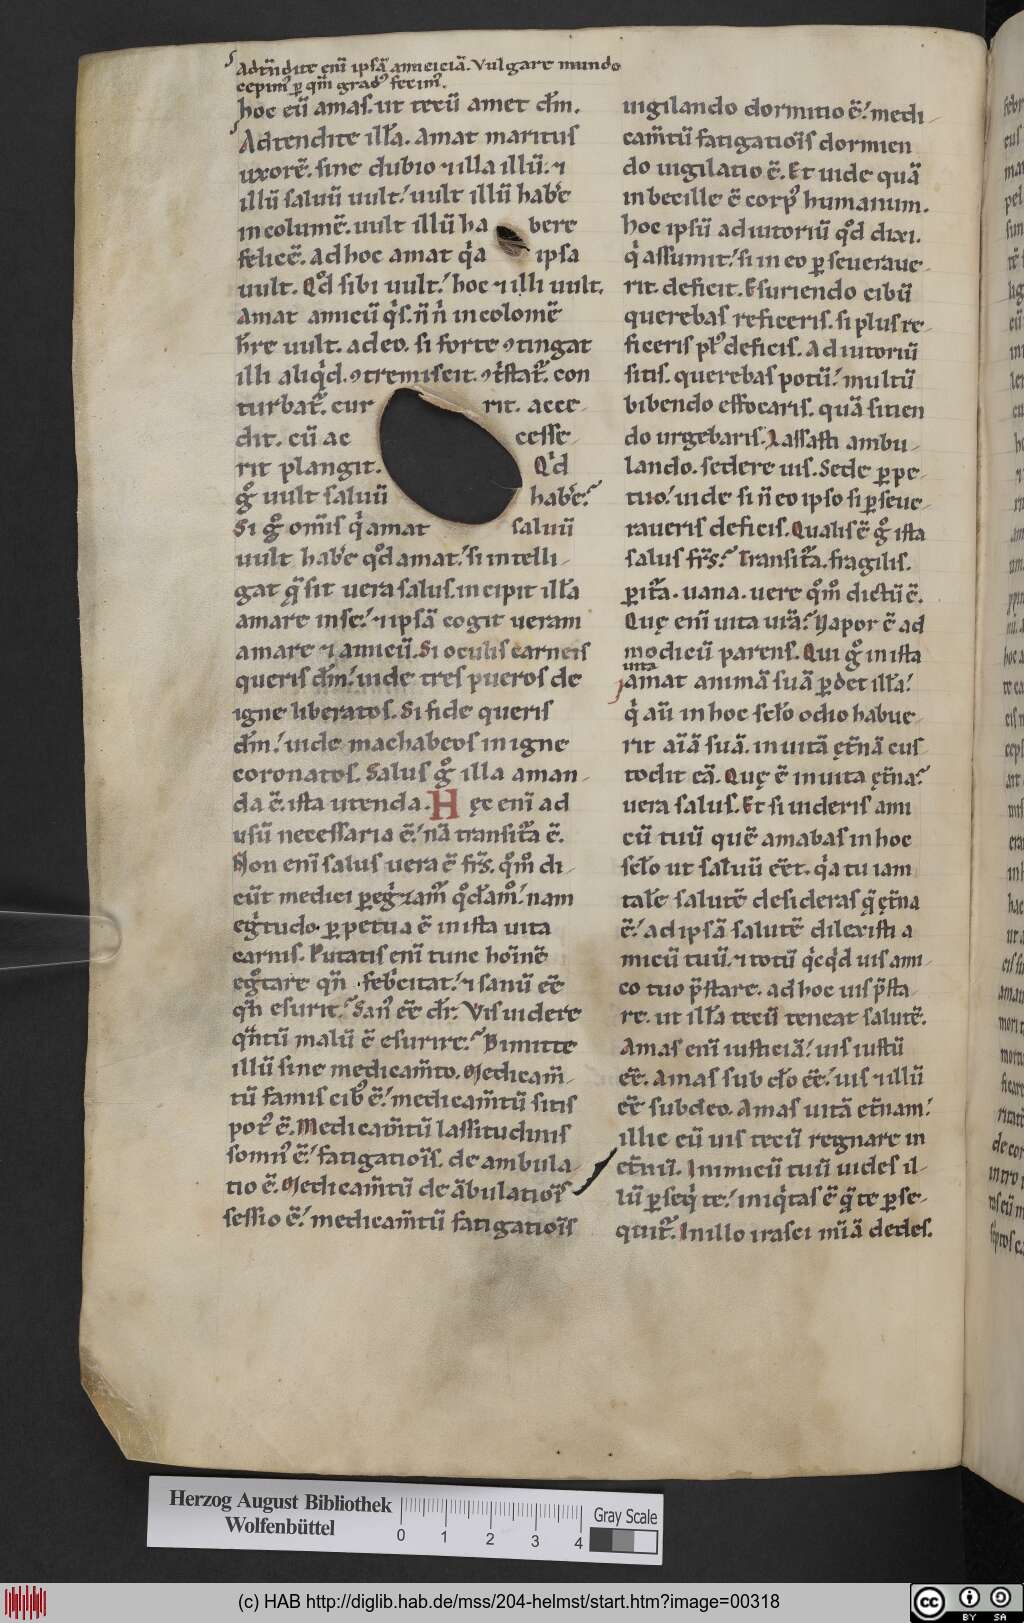 Adtn̄dite enī ipsā amiciciā. Vulgare mundo
cepimꝰ ꝑ qm̄ gradꝰ fecimꝰ.
hoc eū amas. ut tecū amet dm̄.
Adtendite ill̄a. Amat maritus
uxorē. sine dubio ⁊ illa illū. ⁊
illū saluū uult. uult illū habe
incolumē. uult illū ha bere
felicē. Ad hoc amat qͥa ipsa
uult. Qd̊ sibi uult. hoc ⁊ illi uult.
Amat amicū qͥs. n̄ nͥ incolomē
h̄re uult. adeo. si forte ꝯtingat
illi aliqͥd. ꝯtremiscit. ꝯtͥstat᷒. con
turbat᷒. cur rit. acce
dit. cū ac cesse
rit plangit. Qͥd
gͦ uult saluū habe?
Si gͦ om̄is qͥ amat saluū
uult habe qd̊ amat. si intelli
gat q̄ sit uera salus. incipit ill̄a
amare in se. ⁊ ipsā cogit ueram
amare ⁊ amicū. Si oculis carneis
queris dm̄. uide tres pueros de
igne liberatos. Si fide queris
dm̄. uide machabeos in igne
coronatos. Salus gͦ illa aman
da ē. ista utenda. Hęc enī ad
usū necessaria ē. nā transit᷒a ē.
Non enī salus uera ē fr̄s. qm̊ di
cūt medici ꝑegͥ⁊am̄ qd̊amͦ. nam
egͥtudo. ꝑpetua ē in ista uita
carnis. Putatis enī tunc hoīnē
egͦtare qn̄ febͥcitat. ⁊ sanū eē
qn̄ esurit. Sanꝰ eē dr̄. Vis uidere
qn̄tū malū ē esurire? Dimitte
illū sine medicam̄to. Medicam̄
tū famis cibꝰ ē. medicam̄tū sitis
potꝰ ē. Medicam̄tū lassitudinis
somnꝰ ē. fatigatioīs. deambula
tio ē. Medicam̄tū deābulatioīs
sessio ē. medicam̄tū fatigatioīs
uigilando dormitio ē. medi
cam̄tū fatigatioīs dormien
do uigilatio ē. Et uide quā
inbecille ē corpꝰ humanum.
hoc ipsū adiutoriū qd̊ dixi.
qͥ assumit. si in eo ꝑseueraue
rit. deficit. Esuriendo cibū
querebas reficeris. si plus re
ficeris plꝰ deficis. Adiutoriū
sitis. querebas potū. multū
bibendo effocaris. quā sitien
do urgebaris. Lassasti ambu
lando. sedere uis. Sede ꝑpe
tuo. uide si n̄ eo ipso si ꝑseue
raueris deficis. Qualis ē gͦ ista
salus fr̄s? Transit᷒a. fragilis.
ꝑit᷒a. uana. uere qm̊ dictū ē.
Quę enī uita ur̄a? Vapor ē ad
modicū parens. Qui gͦ in ista
uita
amat animā suā ꝑdet ill̄a.
qͥ aū in hoc sel̄o odio habue
rit aīā suā. in uitā ęt̄nā cus
todit eā. Quę ē in uita ęt̄na?
uera salus. Et si uideris ami
cū tuū quē amabas in hoc
sel̄o ut saluū eēt. qͥa tu iam
tal̄e salutē desideras q̄ ęt̄na
ē. ad ipsā salutē dilexisti a
micū tuū. ⁊ totū qͥcqͥd uis ami
co tuo p̄stare. ad hoc uis p̄sta
re. ut ill̄a tecū teneat salutē.
Amas enī iusticiā. uis iustū
eē. Amas sub cl̄o eē. uis ⁊ illū
eē sub deo. Amas uitā et̄nam.
illic eū uis tecū regnare in
et̄nū. Inimicū tuū uides il
lū ꝑseqͥ te. iniqͥtas ē q̄ te ꝑse
quit᷒. In illo irasci mīā dedes.
Herzog August Bibliothek
Wolfenbüttel
0 1 2 3 4
Gray Scale
(c) HAB http://diglib.hab.de/mss/204-helmst/start.htm?image=00318
cc BY SA